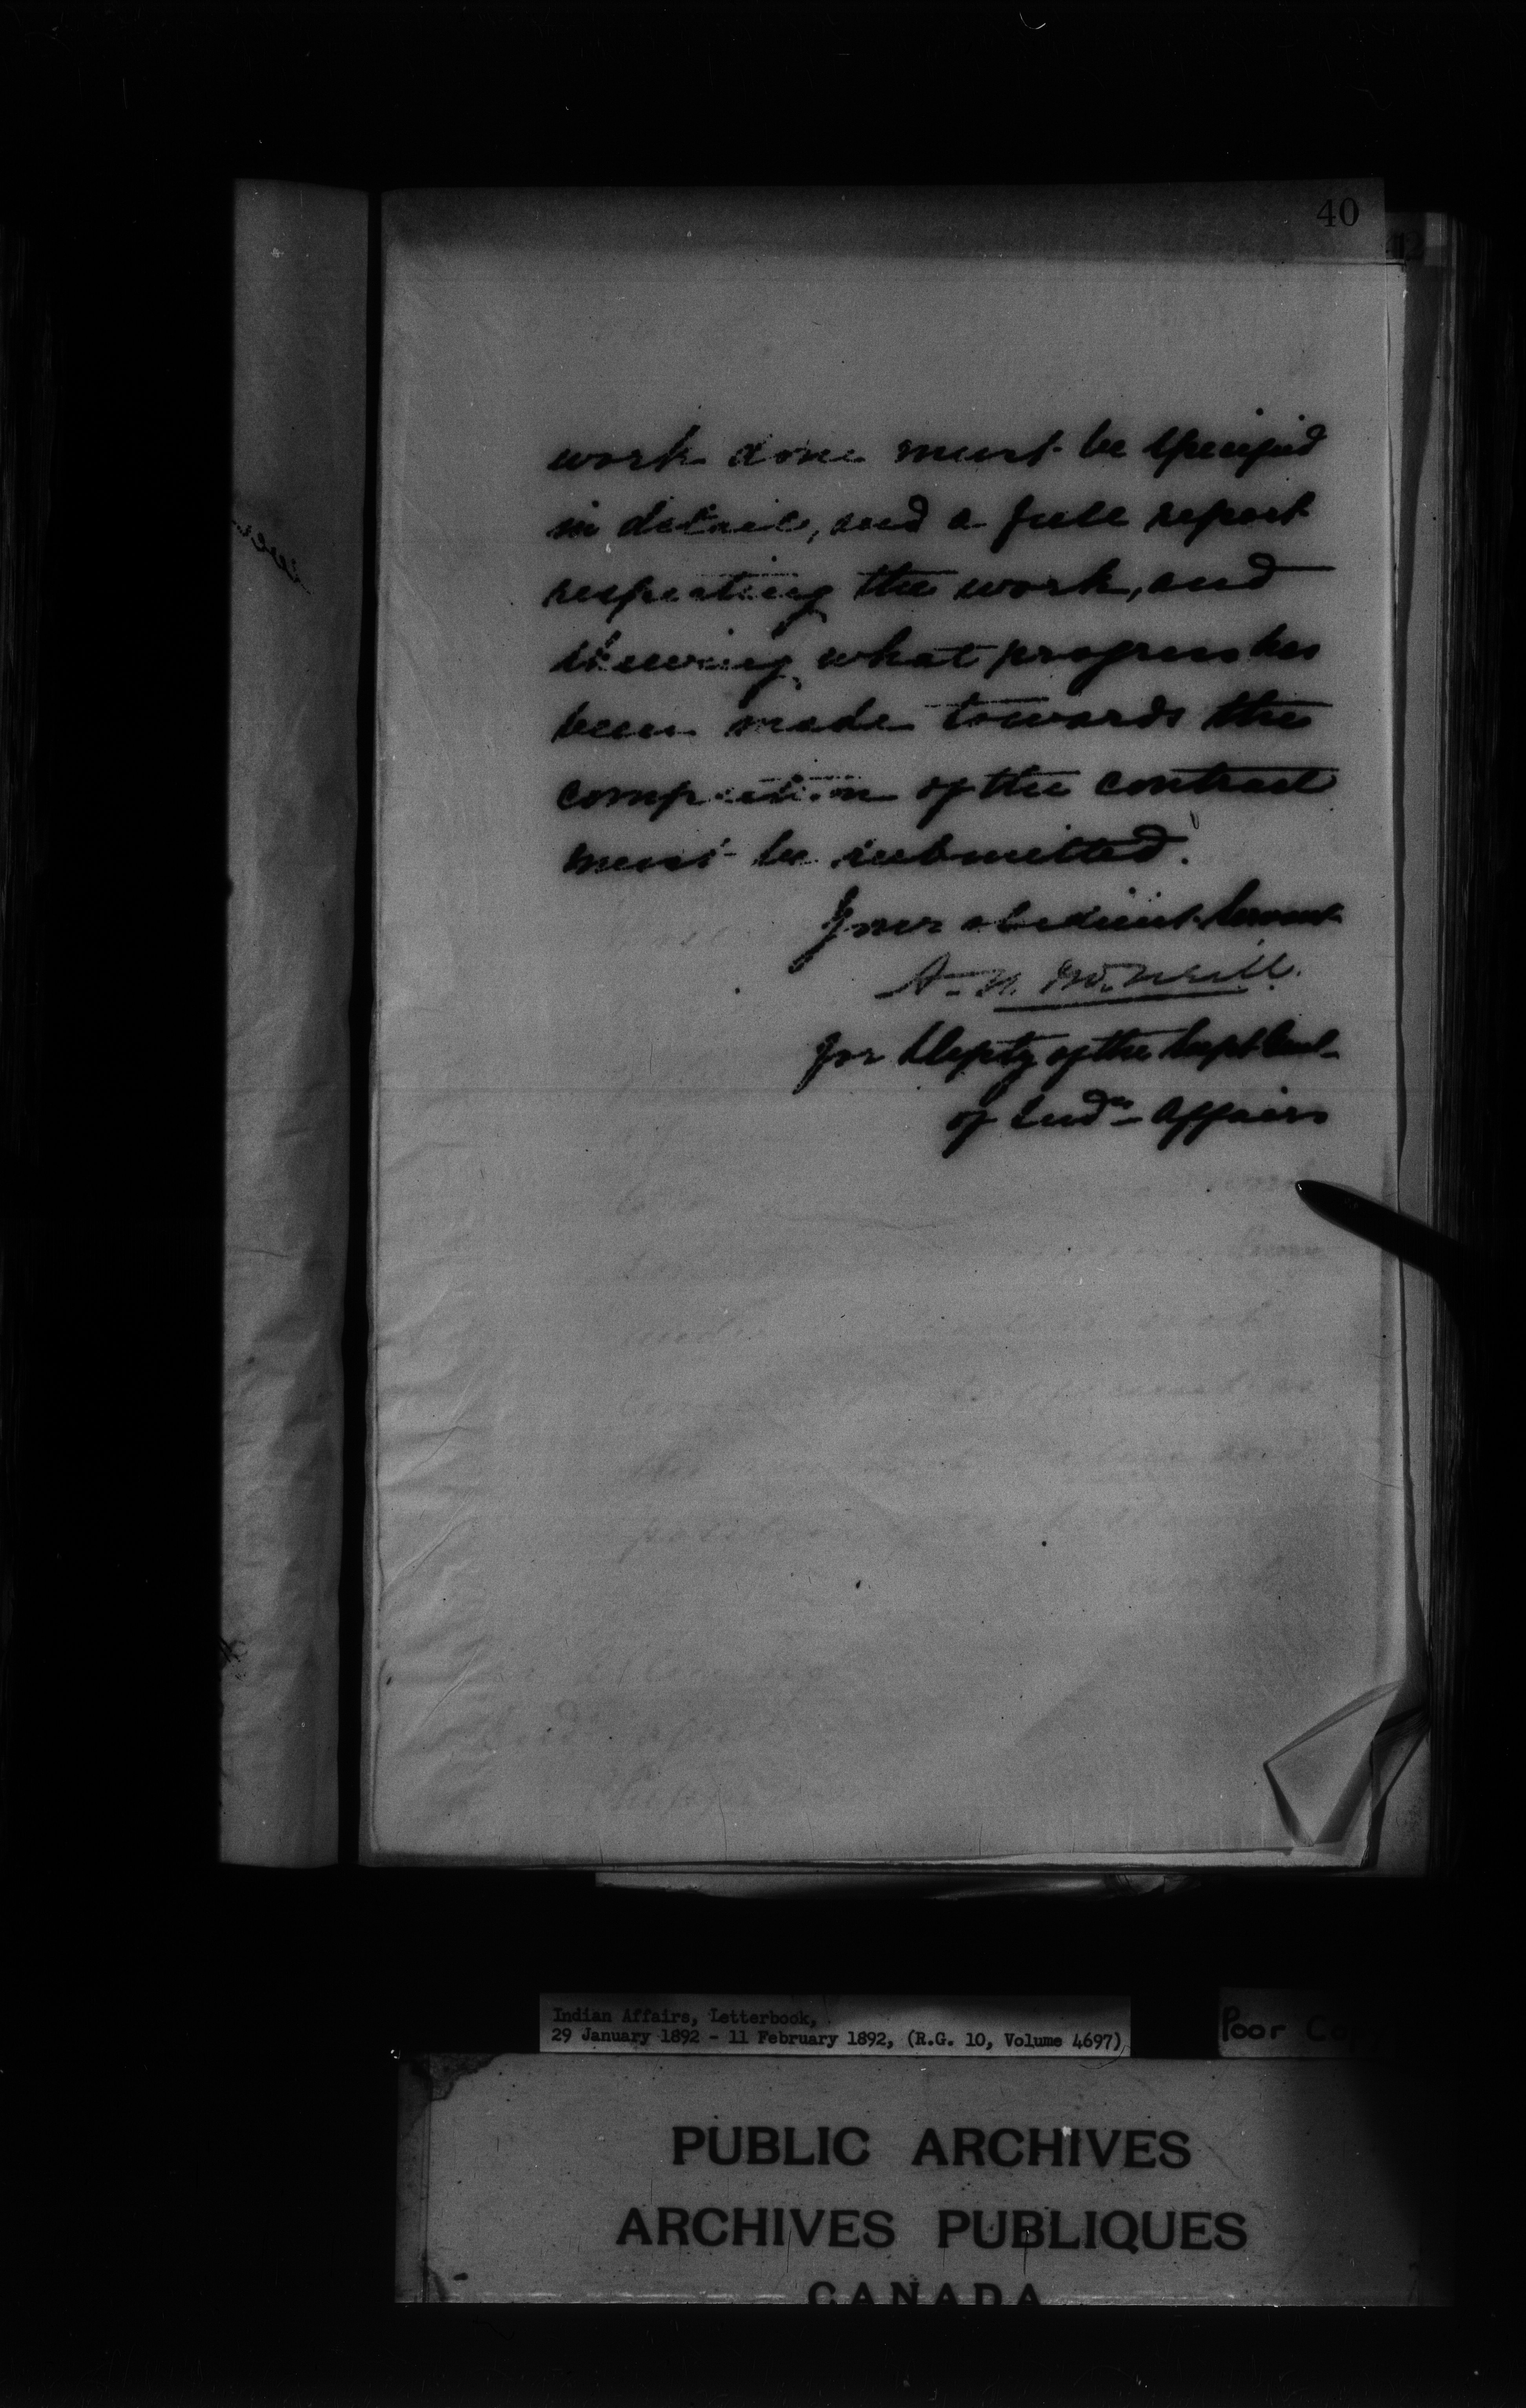 40
work done must be specified
in detail, and a full report
respecting the work, and
shewing what progress has
been made towards the
completion of the contract
must be submitted.
Your obedient Servant
A. N. McNeill.
for Deputy of the Supt Genl
of Indn Affairs
Indian Affairs, Letterbook,
29 January 1892 - 11 February 1892, (R.G. 10, Volume 4697)
Poor
PUBLIC ARCHIVES
ARCHIVES PUBLIQUES
CANADA